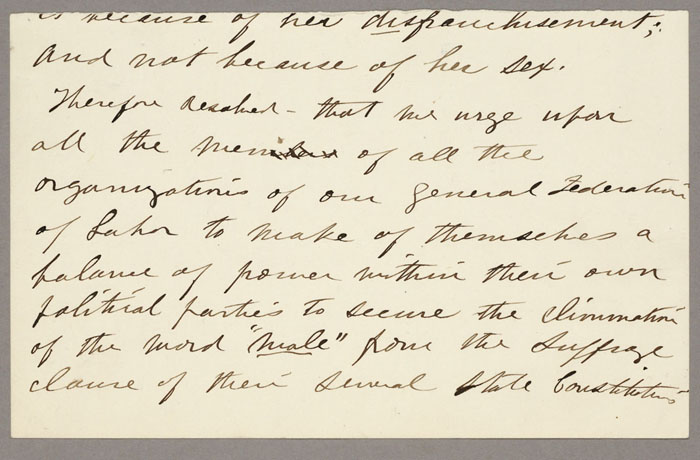 is because of her disfranchisement;
And not because of her sex.
Therefore Resolved - that we urge upon
all the men of all the
organizations of our General Federation
of Labor to make of themselves a
balance of power within their own
political parties to secure the elimination
of the word "male" from the Suffrage
clause of their several State Constitutions